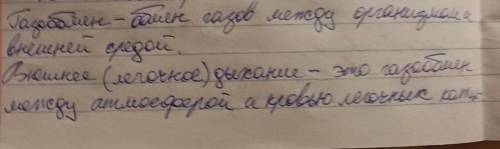 Газобмен - обмен газов между организмом и
внешней средой.
Внешнее (легочное) дыхание - это газобмен
между атмосферой и кровью легочных капи-